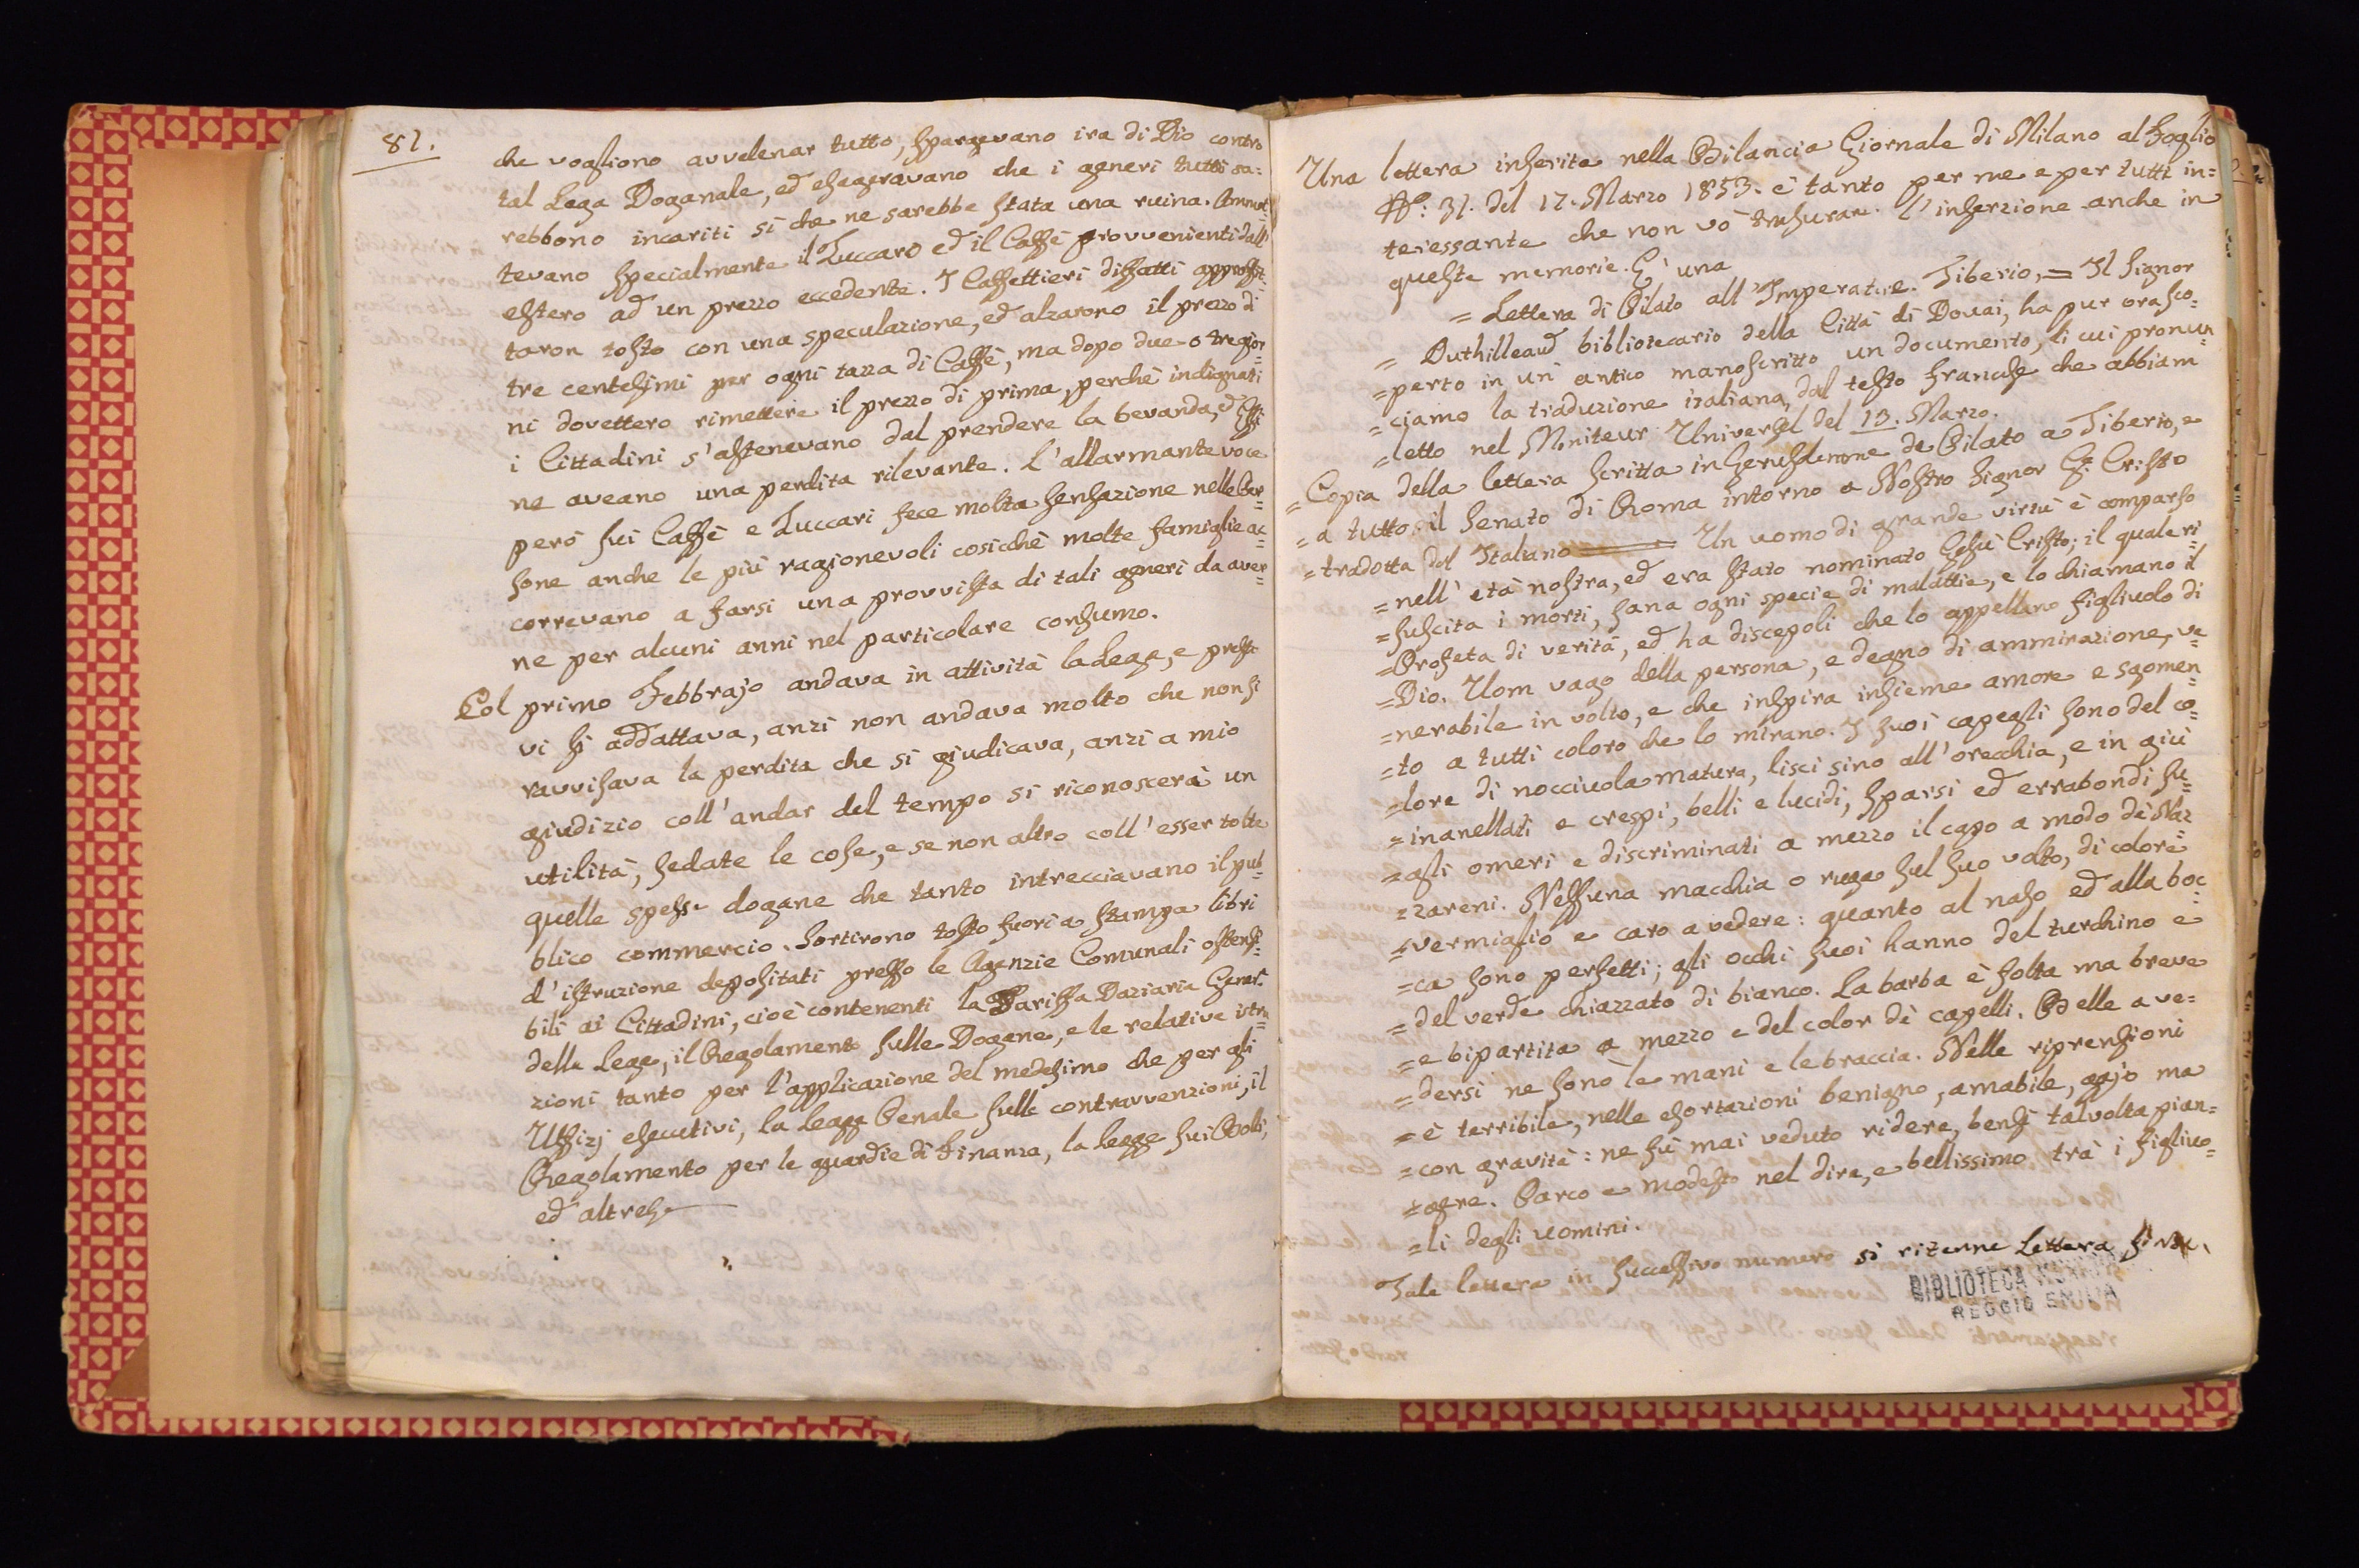 81.
che vogliono avvelenar tutto, spargevano ira di Dio contro
tal Lega Doganale, ed esageravano che i generi tutti sa=
rebbono incariti sì che ne sarebbe stata una ruina.
tevano specialmente il Zuccaro ed il Caffè provvenienti dall'
estero ad un prezzo eccedente. I Caffettieri diffatti approfit=
taron tosto con una speculazione, ed alzarono il prezzo di
tre centesimi per ogni tazza di Caffè, ma dopo due o tre gior=
ni dovettero rimettere il prezzo di prima, perchè indignati
i Cittadini s'astenevano dal prendere la bevanda, ed Essi
ne aveano una perdita rilevante. L'allarmante voce
però sui Caffè e Zuccari fece molta sensazione nelle Per=
sone anche le più ragionevoli cosicchè molte famiglie ac=
correvano a farsi una provvista di tali generi da aver=
ne per alcuni anni nel particolare consumo.
Col primo Febbrajo andava in attività la Lega, e presto
vi si addattava, anzi non andava molto che non si
ravvisava la perdita che si giudicava, anzi a mio
giudizio coll'andar del tempo si riconoscerà un
utilità, sedate le cose, e se non altro coll'esser tolte
quelle spesse dogane che tanto intrecciavano il pub=
blico commercio. Sortirono tosto fuori a stampa libri
d'istruzione depositati presso le Agenzie Comunali ostensi=
bili ai Cittadini, cioè contenenti la Tariffa Daziaria Gener.
della Lega, il Regolamento sulle Dogane, e le relative istru
zioni tanto per l'applicazione del medesimo che per gli
Uffizj esecutivi, la Legge Penale sulle contravvenzioni, il
Regolamento per le guardie di Finanza, la Legge sui Bolli,
ed altresì
Una lettera inserita nella Bilancia Giornale di Milano al Foglio
N°: 31. del 17. Marzo 1853. è tanto per me e per tutti in=
teressante che non vò trasurare l'inserzione anche in
queste memorie. E' una
= Lettera di Pilato all'Imperatore Tiberio, = Il Signor
= Duthilleaud bibliotecario della Città di Dovai, ha pur ora sco=
=perto in un antico manoscritto un documento, di cui pronun=
=ciamo la traduzione italiana, dal testo francese che abbiam
=letto nel Moniteur Universel del 13. Marzo.
= Copia della lettera scritta in Gerusalemme da Pilato a Tiberio, e
= a tutto il Senato di Roma intorno a Nostro Signor G. Cristo
= tradotta dal Italiano == Un uomo di grande virtù è comparso
=nell'età nostra, ed era stato nominato Gesù Cristo; il quale ri=
=suscita i morti, sana ogni specie di malattie, e lo chiamano il
=Profeta di verità, ed ha discepoli che lo appellano figliuolo di
=Dio. Uom vago della persona, e degno di ammirazione, ve=
=nerabile in volto, e che inspira insieme amore e sgomen=
=to a tutti coloro che lo mirano. I suoi capegli sono del co=
=lore di nocciuola matura, lisci sino all'orecchia, e in giù
=inanellati e crespi, belli e lucidi, sparsi ed errabondi su=
=gli omeri e discriminati a mezzo il capo a modo dè Naz=
=zareni. Nessuna macchia o ruga sul suo volto, di colore
=vermiglio e caro a vedere: quanto al naso ed alla boc
=ca sono perfetti; gli occhi suoi hanno del turchino e
=del verde chiazzato di bianco. La barba è folta ma breve
=e bipartita a mezzo e del color dè capelli. Belle a ve=
=dersi ne sono le mani e le braccia. Nelle riprensioni
=è terribile, nelle esortazioni benigno, amabile, gajo ma
=con gravità: ne fù mai veduto ridere, bensì talvolta pian=
=gere. Parco e modesto nel dire, e bellissimo trà i figliuo=
=li degli uomini.
Tale lettera in successivo numero si ritenne Lettera finta.
BIBLIOTECA
REGGIO EMILIA